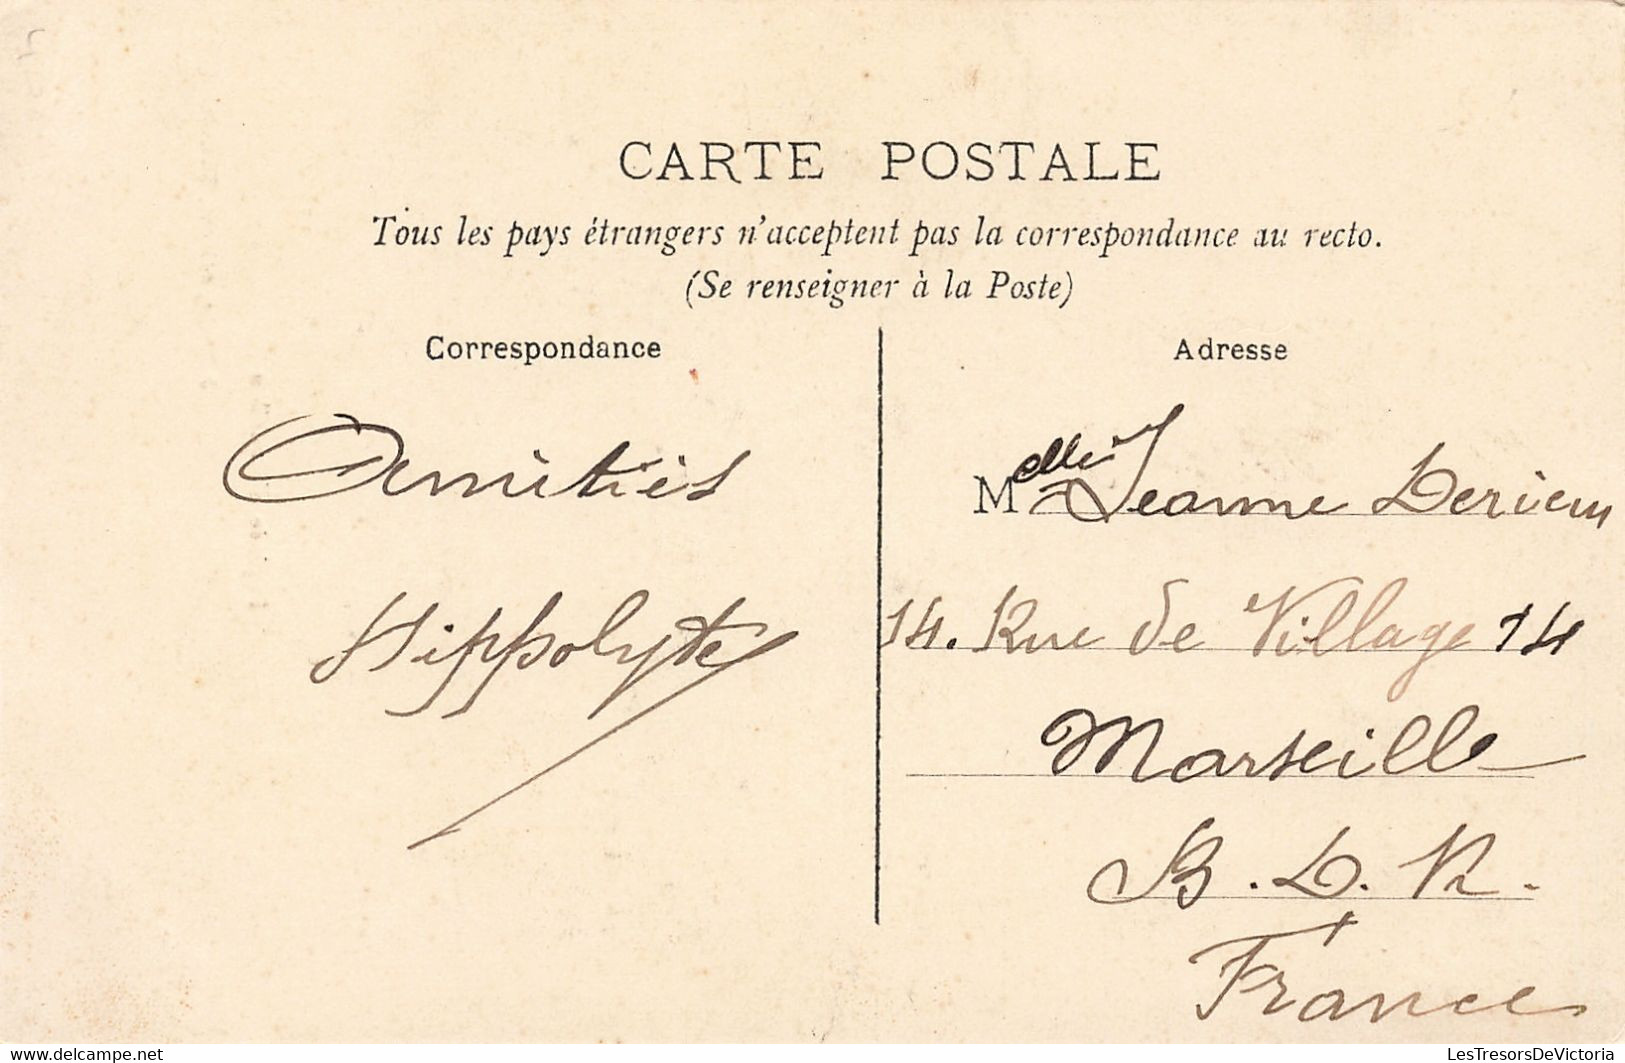 CARTE POSTALE
Tous les pays étrangers n'acceptent pas la correspondance au recto.
(Se renseigner à la Poste)
Correspondance
Amitiés
Hippolyte
Adresse
Melle Jeanne
14. Rue de Village 14
Marseille
B. D. R.
France
delcampe.net
LesTresorsDeVictoria